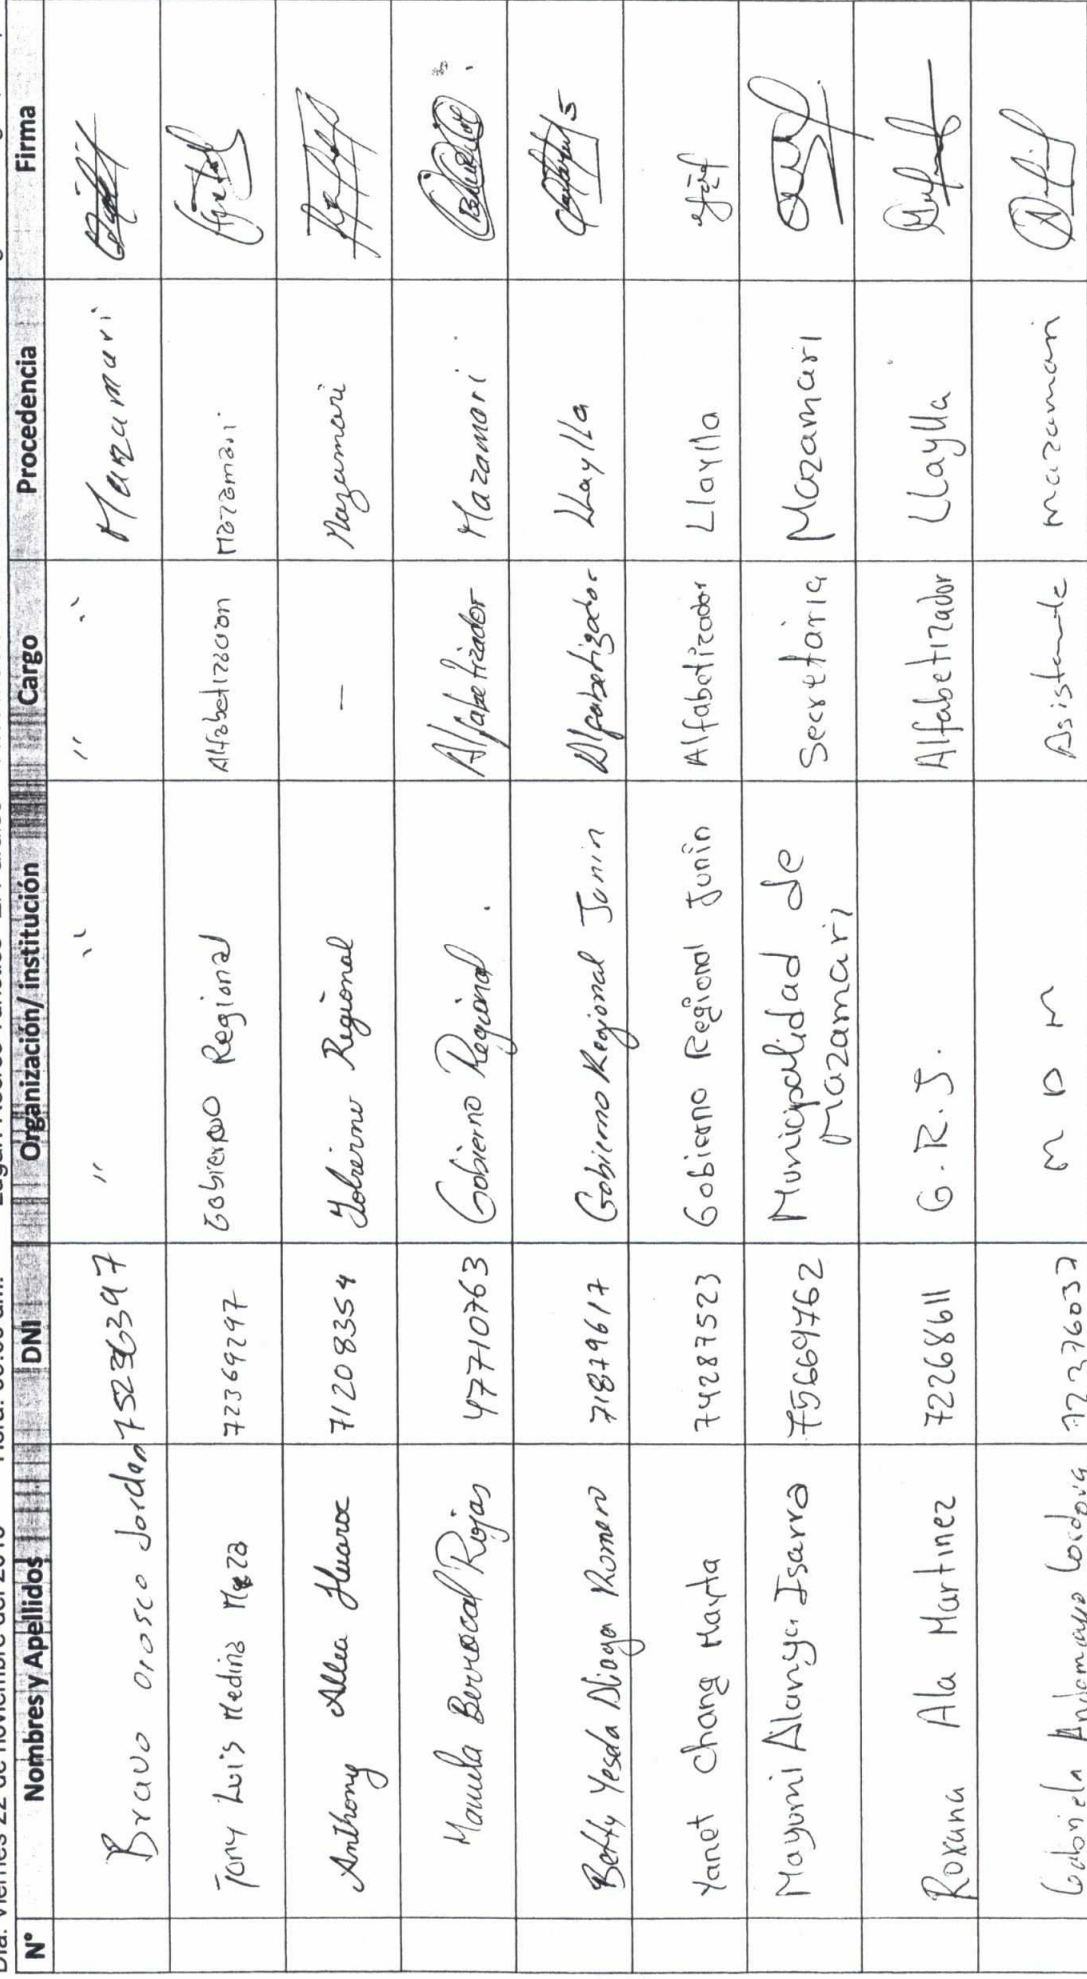 Día: Viernes 22 de noviembre del
N° Nombres y Apellidos DNI Organización/ institución Cargo Procedencia Firma
Bravo Orosco Jordan 75236397 " " " " Mazamari
Tony Luis Medina Meza 72369297 Gobierno Regional Alfabetizacion Mazamari
Anthony Allca Huaroc 71208354 Gobierno Regional — Mazamari
Manuela Berrocal Rojas 47710763 Gobierno Regional. Alfabetizador Mazamari
Betty Yesela Aliaga Romero 71879617 Gobierno Regional Junin Alfabetizador Llaylla
Yanet Chang Mayta 74287523 Gobierno Regional Junín Alfabetizador Llaylla
Mayumi Alanya Isarra 75669762 Municipalidad de Mazamari Secretaria Mazamari
Roxana Ala Martinez 72268611 G.R.J. Alfabetizador Llaylla
Gabriela Andamayo Cordova 72376037 M D M Asistente mazamari